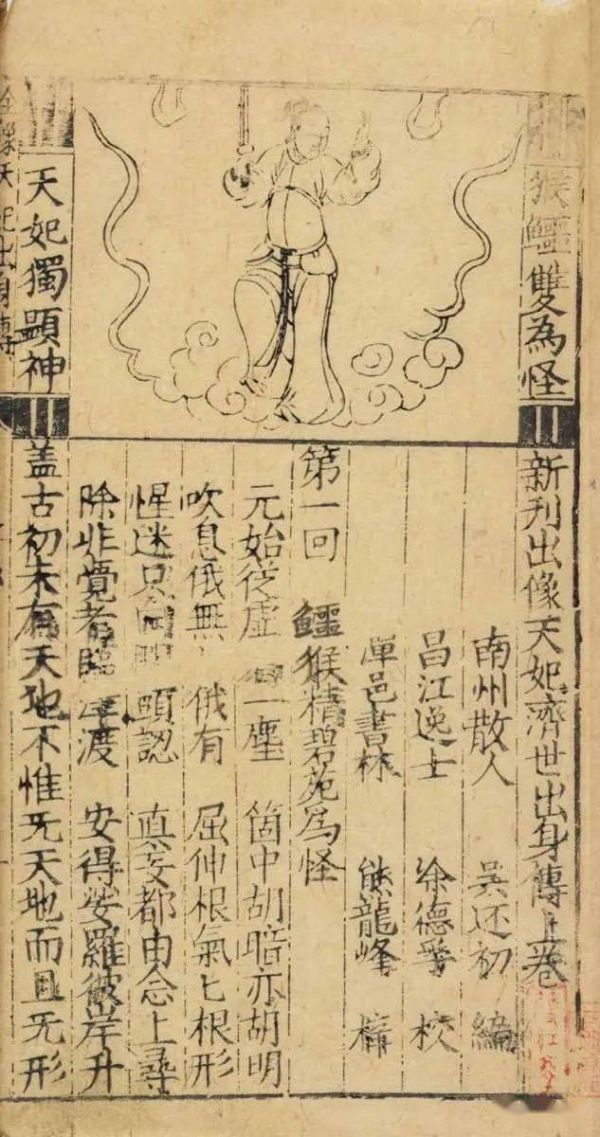 猴鱷雙為怪
天妃獨顯神
新刊出像天妃濟世出身傳上卷
南州散人 吳还初 編
昌江逸士 余德孚 校
潭邑書林 熊龍峰 梓
第一回 鱷猴精碧苑為怪
元始從虛一塵 箇中胡暗亦胡明
吹息俄無 俄有 屈伸根氣匕根形
惺迷只向 頭認 真妄都由念上尋
除非覺者臨 渡 安得娑羅彼岸升
盖古初未有天地不惟无天地而且无形
天妃出身傳